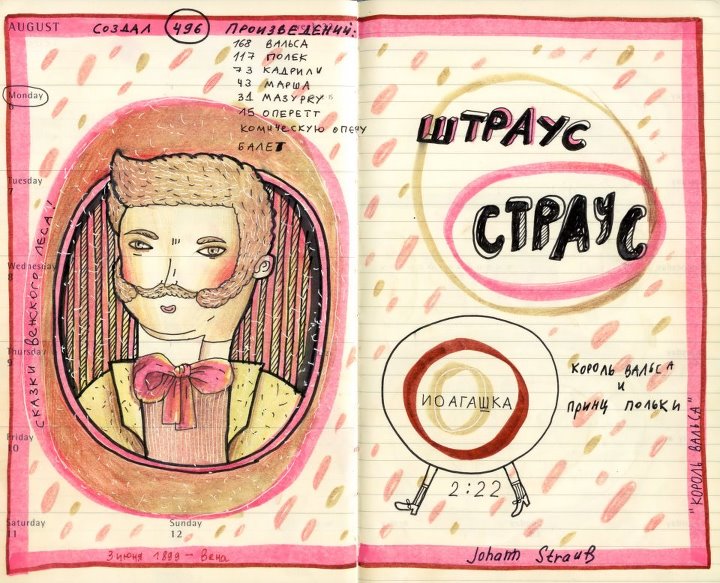 AUGUST
СОЗДАЛ 496 ПРОИЗВЕДЕНИЙ:
168 ВАЛЬСА
117 ПОЛЕК
73 КАДРИЛИ
43 МАРША
31 МАЗУРКУ
15 ОПЕРЕТТ
КОМИЧЕСКУЮ ОПЕРУ
БАЛЕТ
Monday
6
Tuesday
7
Wednesday
8
Thursday
9
Friday
10
Saturday
11
Sunday
12
СКАЗКИ ВЕНСКОГО ЛЕСА!!
3 июня 1899 – Вена
ШТРАУС
СТРАУС
ИОАГАШКА
2:22
КОРОЛЬ ВАЛЬСА
И
ПРИНЦ ПОЛЬКИ
"КОРОЛЬ ВАЛЬСА"
Johann Strauß